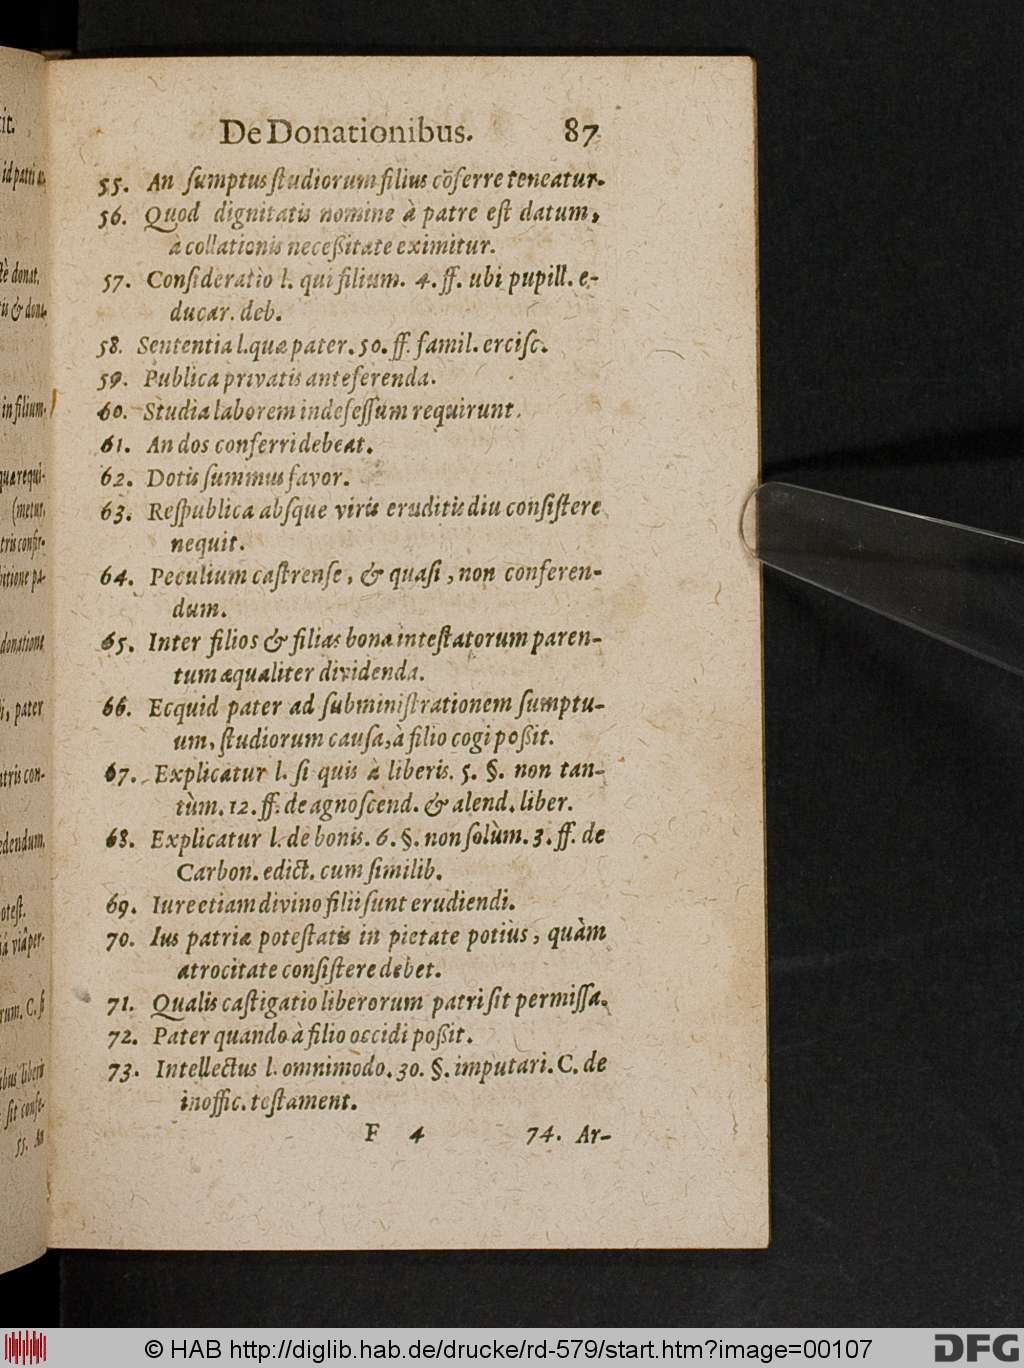 De Donationibus. 87
55. An ſumptus ſtudiorum filius cõferre teneatur.
56. Quod dignitatis nomine à patre eſt datum,
à collationis neceßitate eximitur.
57. Conſideratio l. qui filium. 4. ff. ubi pupill. e-
ducar. deb.
58. Sententia l. quæ pater. 50. ff. famil. erciſc.
59. Publica privatis anteferenda.
60. Studia laborem indefeſſum requirunt.
61. An dos conferri debeat.
62. Dotis ſummus favor.
63. Reſpublica abſque viris eruditis diu conſiſtere
nequit.
64. Peculium caſtrenſe, & quaſi, non conferen-
dum.
65. Inter filios & filias bona inteſtatorum paren-
tum æqualiter dividenda.
66. Ecquid pater ad ſubminiſtrationem ſumptu-
um, ſtudiorum cauſa, à filio cogi poßit.
67. Explicatur l. ſi quis à liberis. 5. §. non tan-
tùm. 12. ff. de agnoſcend. & alend. liber.
68. Explicatur l. de bonis. 6. §. non ſolùm. 3. ff. de
Carbon. edict. cum ſimilib.
69. Iure etiam divino filii ſunt erudiendi.
70. Ius patriæ poteſtatis in pietate potiùs, quàm
atrocitate conſiſtere debet.
71. Qualis caſtigatio liberorum patri ſit permiſſa.
72. Pater quando à filio occidi poßit.
73. Intellectus l. omnimodo. 30. §. imputari. C. de
inoffic. teſtament.
F 4 74. Ar-
© HAB http://diglib.hab.de/drucke/rd-579/start.htm?image=00107
DFG